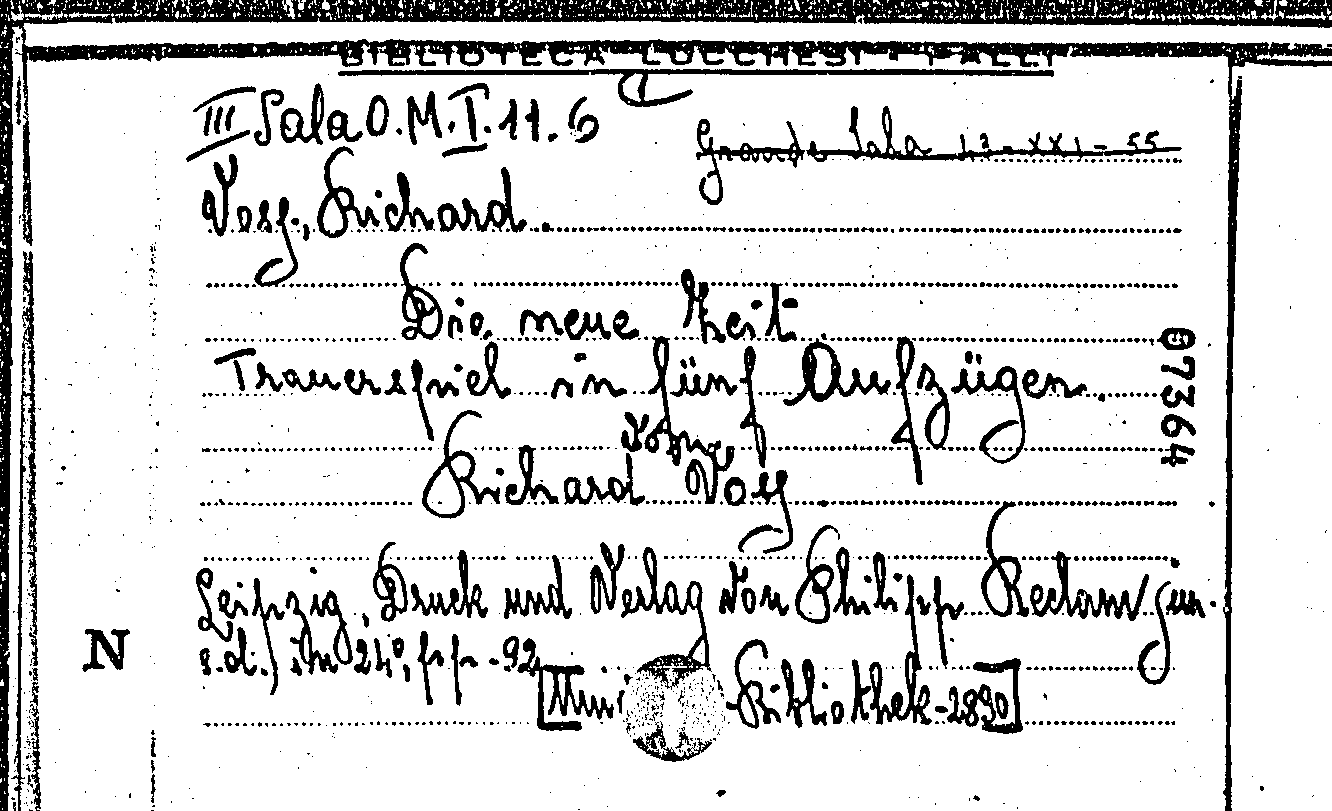 BIBLIOTECA LUCCHESI - PALLI
III Sala O.M.I.11.6
Grande Sala 13-XXI-55
Voss, Richard.
Die neue Zeit.
Trauerspiel in fünf Aufzügen.
von
Richard Voss.
07364
Leipzig, Druck und Verlag von Philipp Reclam jun.
s.d., in 24°, pp.-92
[Uni -Bibliothek-2890]
N